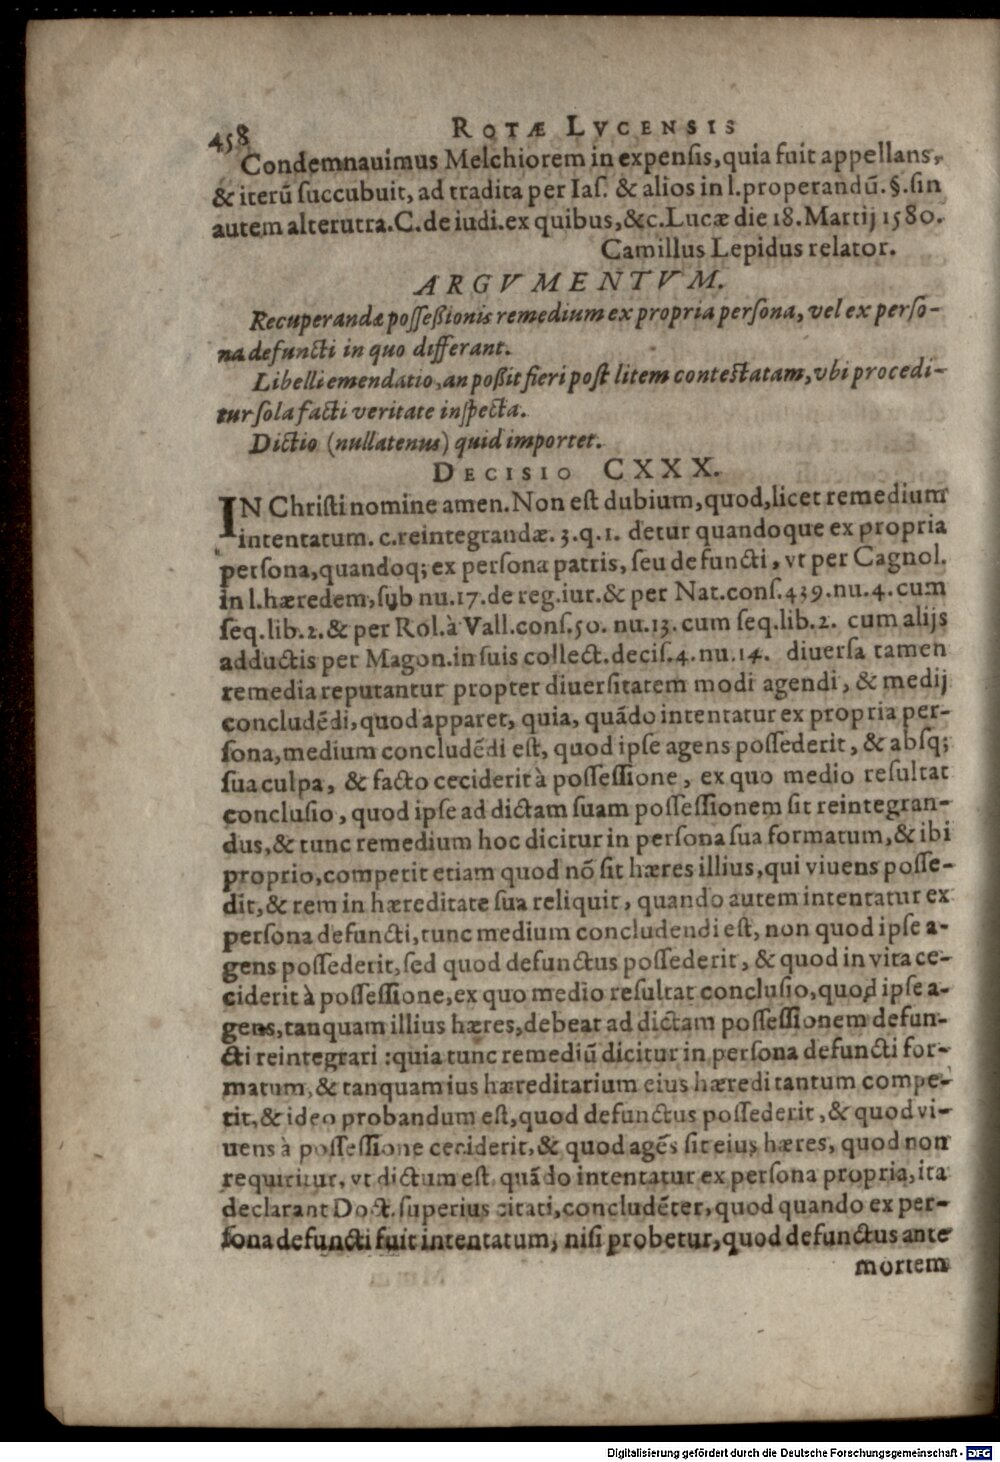 458
ROTÆ LVCENSIS
Condemnauimus Melchiorem in expensis, quia fuit appellans,
& iterū succubuit, ad tradita per Ias. & alios in l.properandū.§.sin
autem alterutra.C.de iudi.ex quibus,&c.Lucæ die 18.Martij 1580.
Camillus Lepidus relator.
ARGVMENTVM.
Recuperandæ possessionis remedium ex propria persona, vel ex perso-
na defuncti in quo differant.
Libelli emendatio, an possit fieri post litem contestatam, vbi procedi-
tur sola facti veritate inspecta.
Dictio (nullatenus) quid importet.
DECISIO CXXX.
IN Christi nomine amen. Non est dubium, quod, licet remedium
intentatum. c.reintegrandæ. 3.q.1. detur quandoque ex propria
persona, quandoq; ex persona patris, seu defuncti, vt per Cagnol.
in l.hæredem, sub nu.17.de reg.iur.& per Nat.cons.439.nu.4.cum
seq.lib.2.& per Rol.à Vall.cons.50. nu.13.cum seq.lib.2. cum alijs
adductis per Magon.in suis collect.decis.4.nu.14. diuersa tamen
remedia reputantur propter diuersitatem modi agendi, & medij
concludēdi, quod apparet, quia, quādo intentatur ex propria per-
sona, medium concludēdi est, quod ipse agens possederit, & absq;
sua culpa, & facto ceciderit à possessione, ex quo medio resultat
conclusio, quod ipse ad dictam suam possessionem sit reintegran-
dus, & tunc remedium hoc dicitur in persona sua formatum, & ibi
proprio, competit etiam quod nō sit hæres illius, qui viuens posse-
dit, & rem in hæreditate sua reliquit, quando autem intentatur ex
persona defuncti, tunc medium concludendi est, non quod ipse a-
gens possederit, sed quod defunctus possederit, & quod in vita ce-
ciderit à possessione, ex quo medio resultat conclusio, quod ipse a-
gens, tanquam illius hæres, debeat ad dictam possessionem defun-
cti reintegrari : quia tunc remediū dicitur in persona defuncti for-
matum, & tanquam ius hæreditarium eius hæredi tantum compe-
tit, & ideo probandum est, quod defunctus possederit, & quod vi-
uens à possessione ceciderit, & quod agēs sit eius hæres, quod non
requiritur, vt dictum est, quādo intentatur ex persona propria, ita
declarant Doct. superius citati, concludēter, quod quando ex per-
sona defuncti fuit intentatum, nisi probetur, quod defunctus ante
mortem
Digitalisierung gefördert durch die Deutsche Forschungsgemeinschaft - DFG